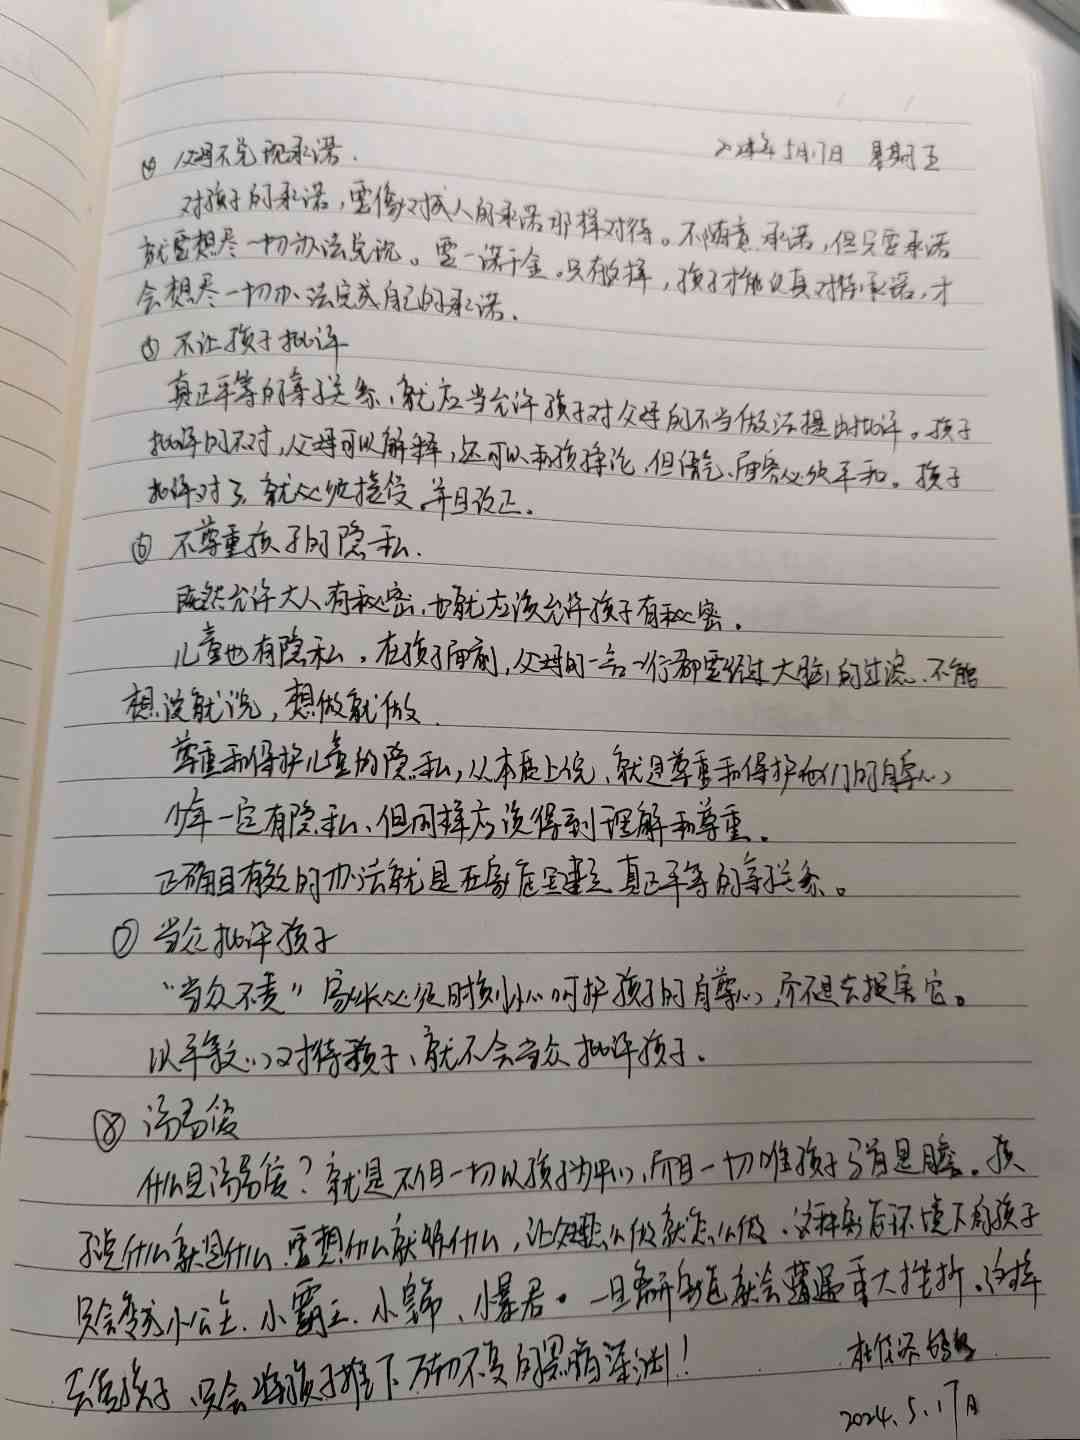 ④ 父母不兑现承诺. 2024年5月17日 星期五
对孩子的承诺，要像对成人的承诺那样对待。不随意承诺，但只要承诺
就要想尽一切办法兑现。要一诺千金。只有这样，孩子才能认真对待承诺，才
会想尽一切办法完成自己的承诺.
⑤ 不让孩子批评
真正平等的亲子关系、就应当允许孩子对父母的不当做法提出批评。孩子
批评的不对，父母可以解释，还可以和孩子争论，但语气、面容必须平和。孩子
批评对了，就必须接受，并且改正.
⑥ 不尊重孩子的隐私.
既然允许大人有秘密，也就应该允许孩子有秘密。
儿童也有隐私，在孩子面前，父母的一言一行都要经过大脑的过滤、不能
想说就说，想做就做.
尊重和保护儿童的隐私，从本质上说、就是尊重和保护他们的自尊心
少年一定有隐私、但同样应该得到理解和尊重。
正确且有效的办法就是在家庭里建立真正平等的亲子关系。
⑦ 当众批评孩子
“当众不责”家长必须时刻小心呵护孩子的自尊心，而不是去损害它。
以平等之心对待孩子、就不会当众批评孩子.
⑧ 汤写度
什么是汤写度？就是不但一切以孩子为中心，而且一切唯孩子马首是瞻。孩
子说什么就是什么、要想什么就给什么，让父母怎么做就怎么做、这种家庭环境下的孩子
只会变成小公主、小霸王、小皇帝、小暴君。一旦离开家庭就会遭遇重大挫折。这样
去爱孩子、只会将孩子推下万劫不复的黑暗深渊！
2024.5.17日